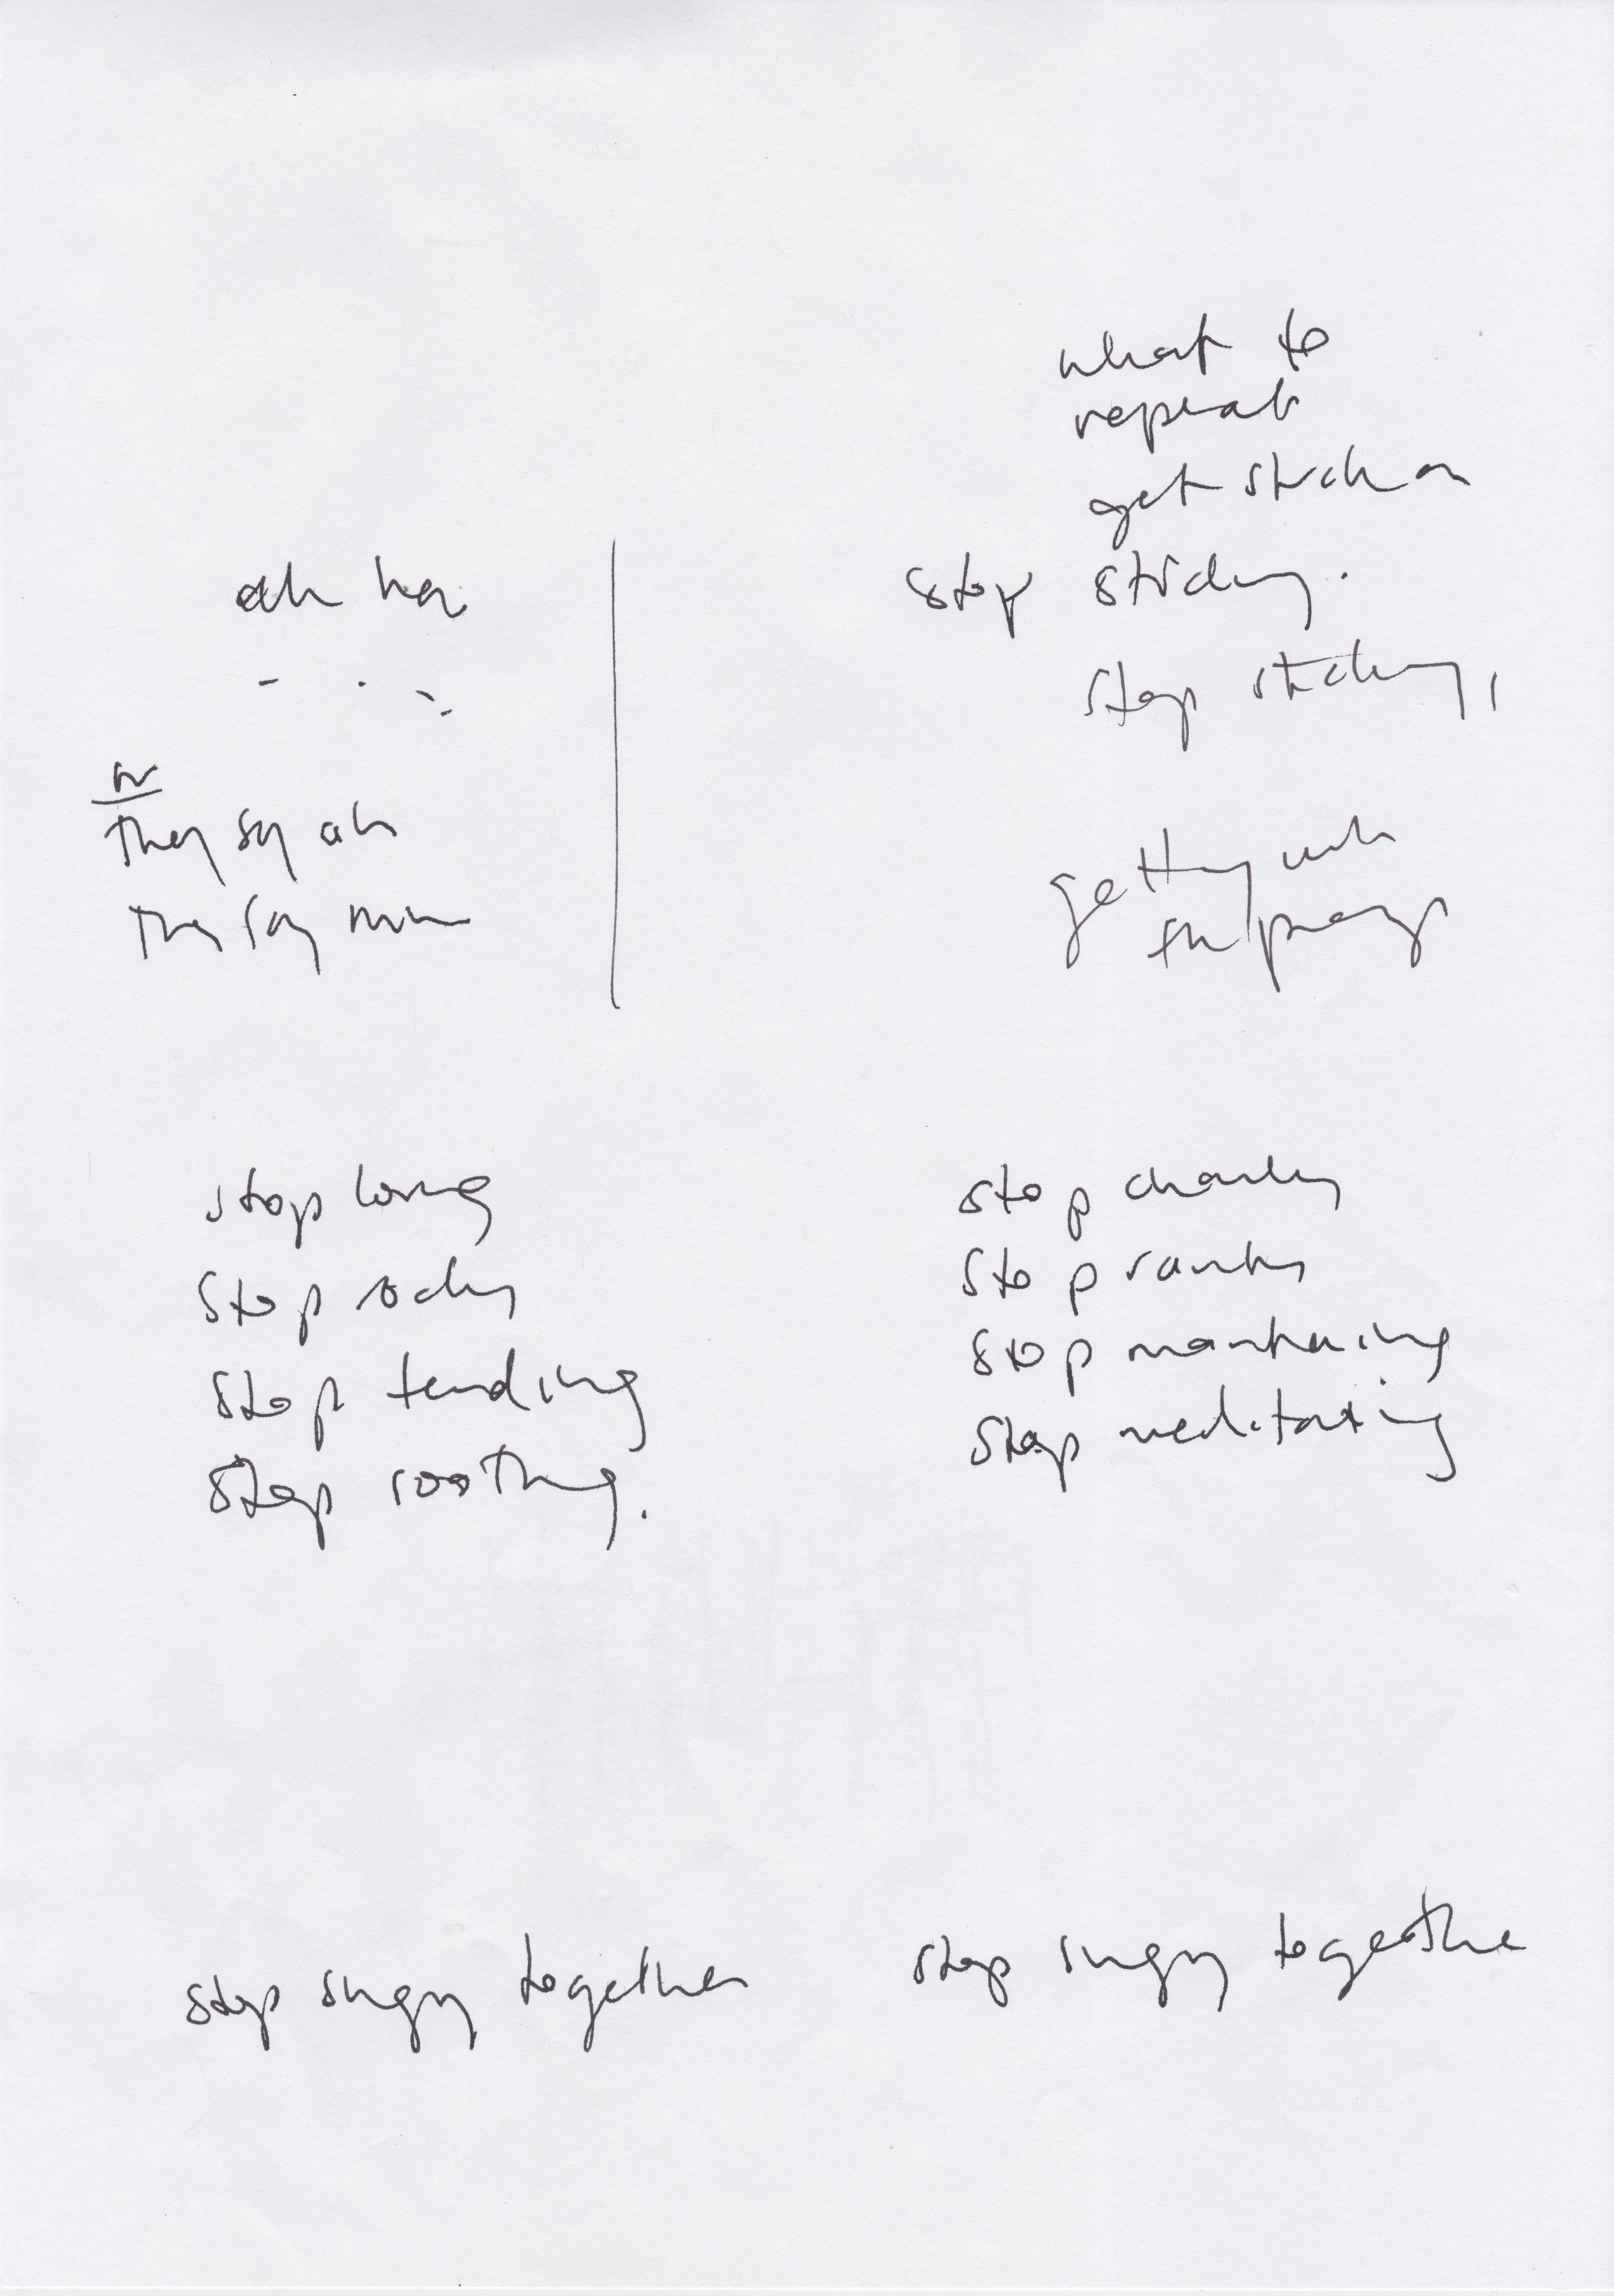 what to
repeat
get stuck on
stop sticking.
stop sticking,
ah ha
they say ah
they say mm
getting
the
stop loving
stop rocking
stop tending
stop soothing.
stop chanting
stop ranting
stop mantraing
stop meditating
stop singing together
stop singing together